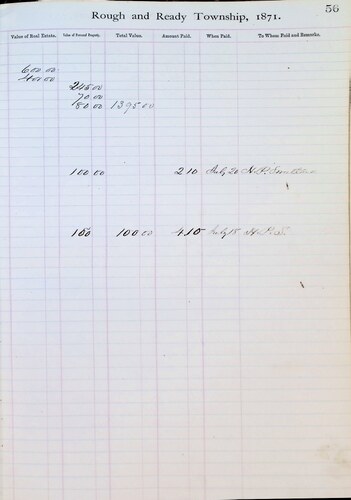 56
Rough and Ready Township, 1871.
Value of Real Estate. Value of Personal Property. Total Value. Amount Paid. When Paid. To Whom Paid and Remarks.
600 00
400 00
245 00
70 00
80 00 1395 00
100 00 2 10 July 20
100 100 00 4 10 July 18